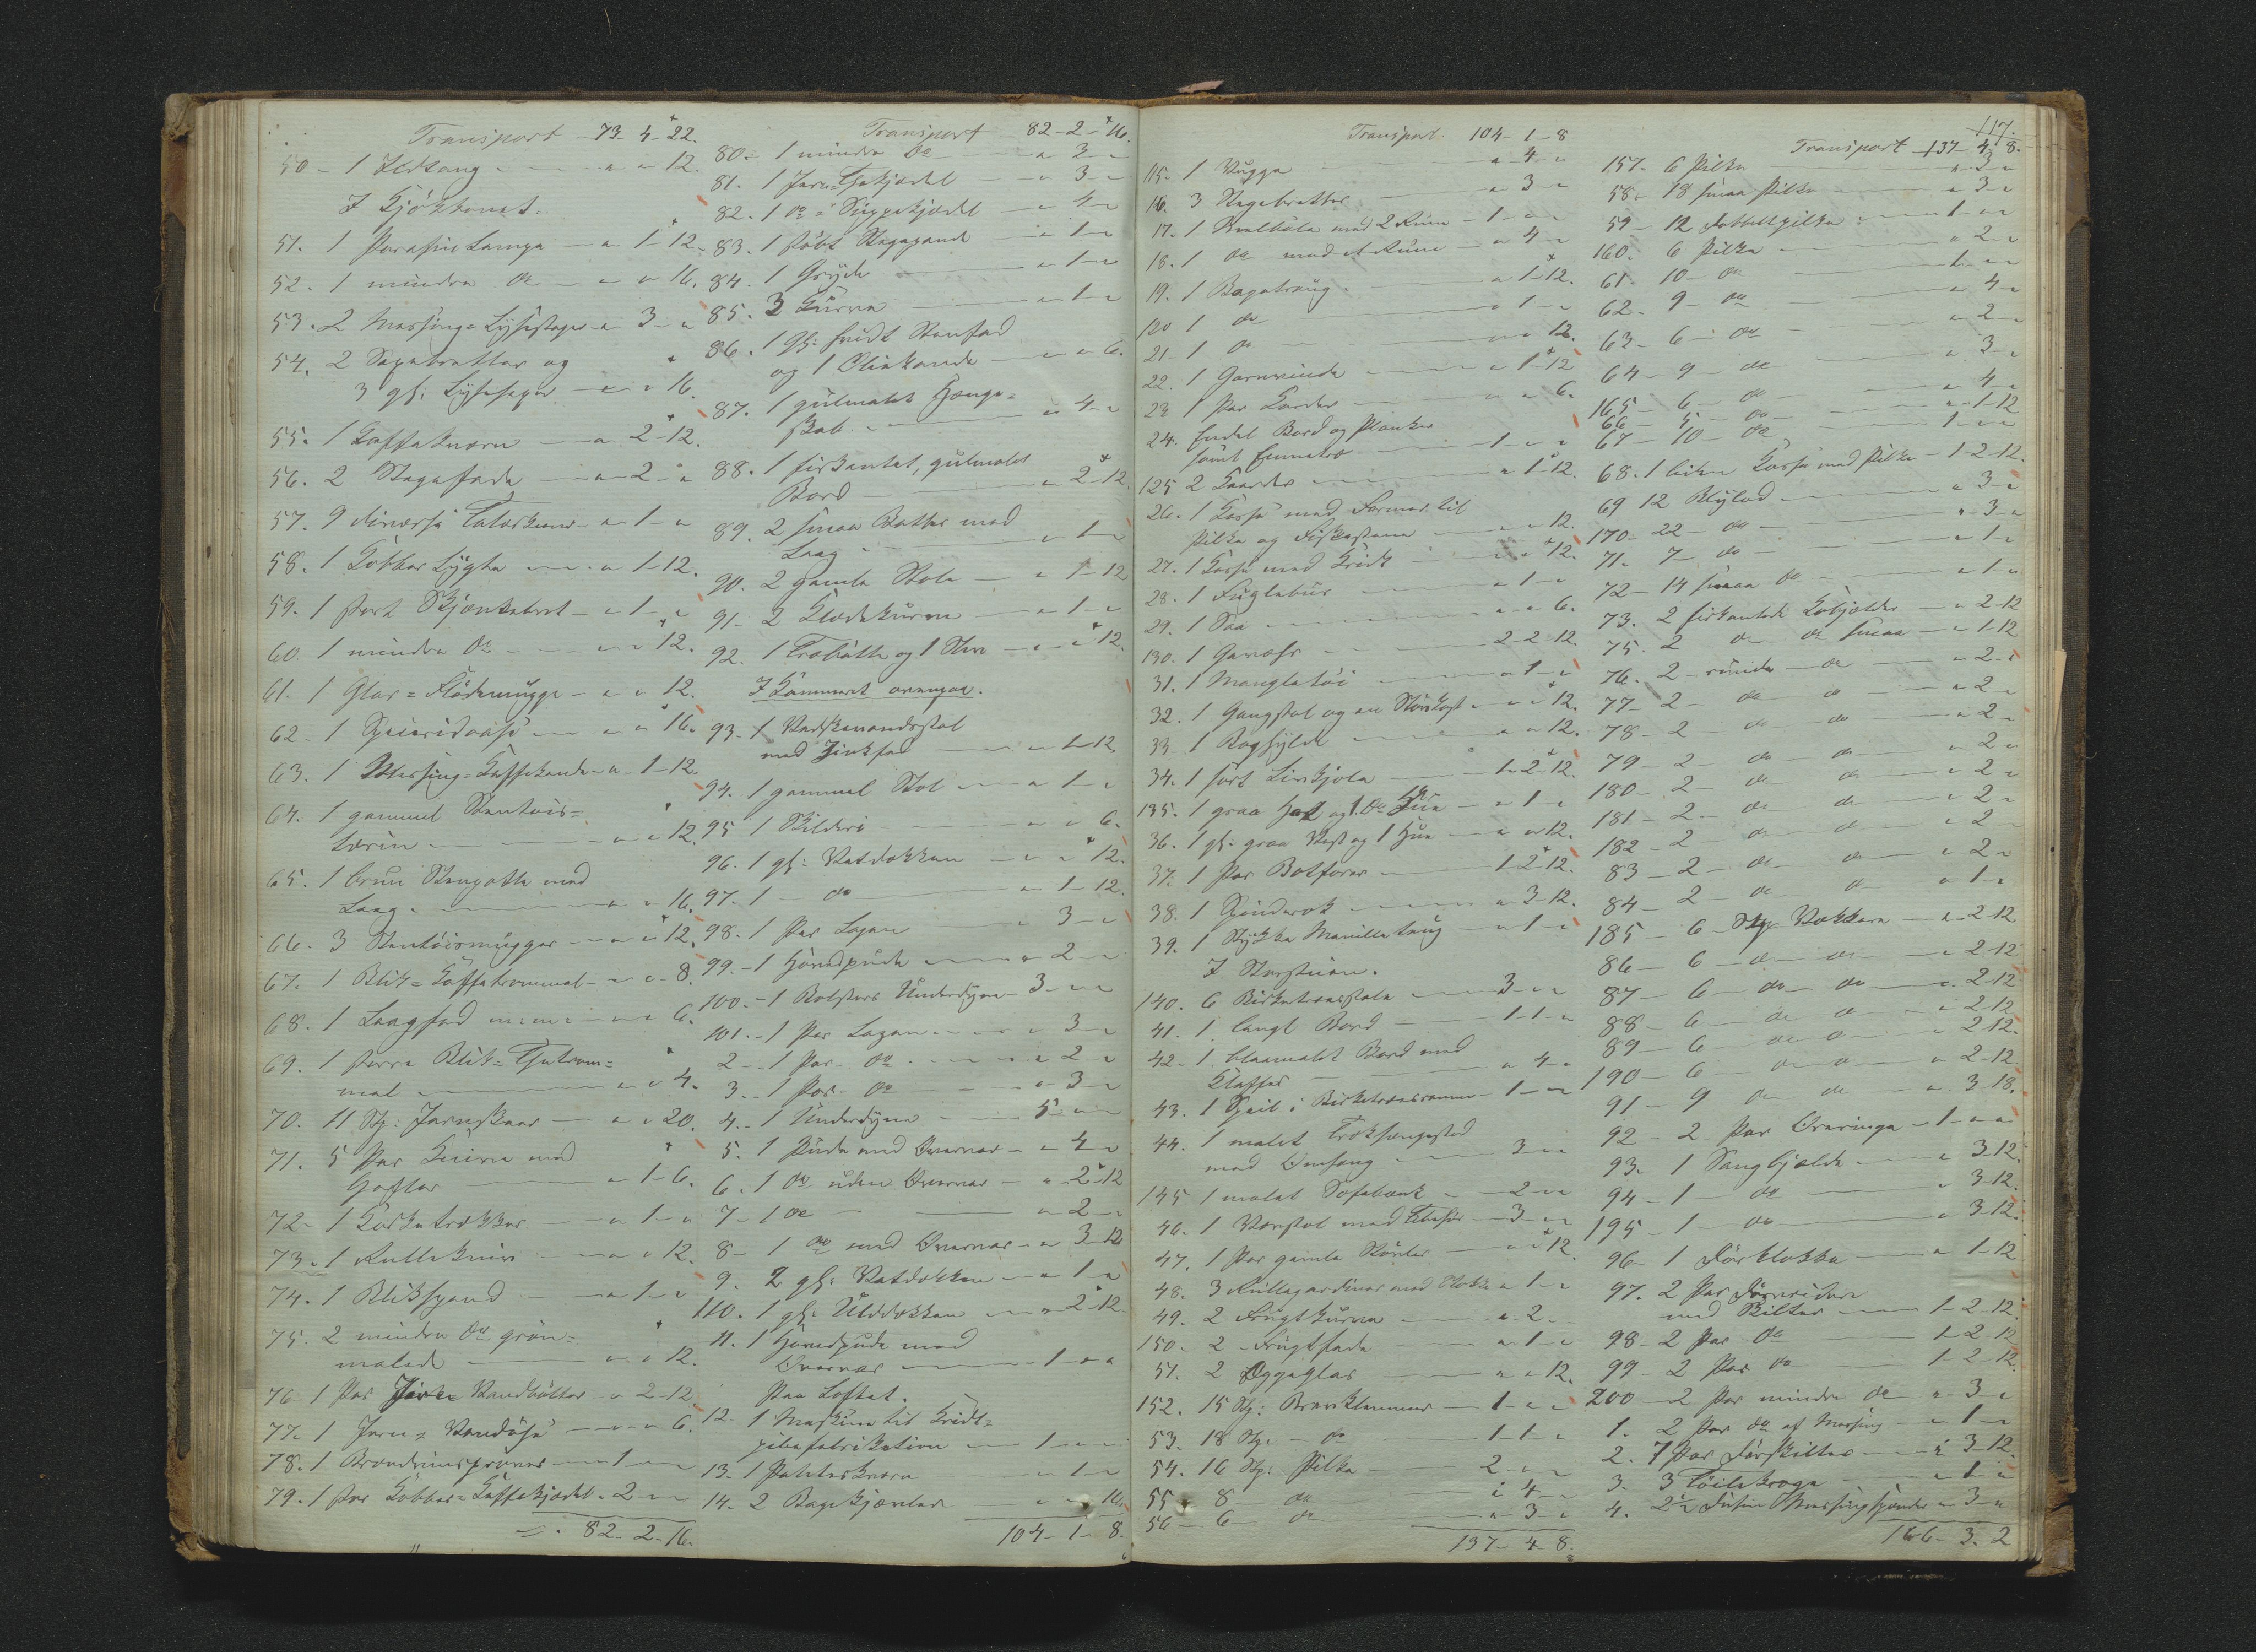 Transport 73-4-22.
50 - 1 Ildtang - " - " - 12.
I Kjökkenet.
51. 1 Parafin Lampe - " - 1-12.
52. 1 mindre do - " - " - 16.
53. 2 Messing-Lysestager - " - 3 - "
54. 2 og
3 gl: - " - " 16.
55. 1 Kaffekværn - " - 2-12.
56. 2 Stegefade - " - 2 - "
57. 9 diverse Talerkener - " - 1 - "
58. 1 Kobber Lygte - " - 1-12.
59. 1 stort Skjænkebret - " - 1 - "
60. 1 mindre do - " - " 12.
61. 1 Glas-Flödemugge - " - " 12.
62. 1 - " - " 16.
63. 1 Messing-Kaffekande - " - 1-12.
64. 1 gammel Stentöis-
terin - " - " 12.
65. 1 brun Stenpotte med
Laag - " - " 16.
66. 3 Stentöismugger - " - " 12.
67. 1 Blik-Kaffetrommel - " - " 8.
68. 1 Laagfad - " - " 6.
69. 1 større Blik-Thetrom-
mel - " - " 4.
70. 11 Stk: - " - " 20.
71. 5 Par Knive med
Gafler - " 1-6.
72. 1 Korketrækker - " - 1 - "
73. 1 - " - " 12.
74. 1 Blikspand - " - 1 - "
75. 2 mindre do grön-
malede - " - " 12.
76 - 1 Par Vandbötter - " - 2-12
77. 1 Jern-Vandöse - " - " 6.
78. 1 - 1 - "
79. 1 stor Kobber-Kaffekjedel - 2 - " - "
82-2-16.
Transport 82-2-16.
80. 1 mindre do - " - 2 - "
81. 1 Jern-Thekjedel - " - 3 - "
82. 1 do Suppekjedel - " - 4 - "
83. 1 støbt Stegepande - " - 1 - "
84. 1 Gryde - " - 1 - "
85. 3 Kurve - " - 1 - "
86. 1 gl: hvidt Stenfad
og 1 Blikkande - " - " 6.
87. 1 gulmalet Hænge-
skab - " - 4 - "
88. 1 firkantet, gulmalet
Bord - " 2-12.
89. 2 smaa Bøtter med
Laag - " - 1 - "
90. 2 gamle Stole - " - 1-12
91. 2 Klædekurve - " - 1 - "
92. 1 Træbøtte og 1 - " - " 12.
I Kammeret ovenpaa.
93. 1 Vadskevandsstol
med Zinkfad - " - 1-12
94. 1 gammel Stol - " - 1 - "
95 1 Skilderi - " - " 6.
96. 1 gl: Vatdække - " - " 12.
97. 1 do - " 1-12.
98. 1 Par Lagen - " 3 - "
99. 1 Hovedpude - " - 2 - "
100. 1 Bolsters Underdyne - 3 - " - "
101. 1 Par Lagen - " - 3 - "
2 - 1 Par do - " - 2 - "
3. 1 Par do - " - 3 - "
4. 1 Underdyne - 5 - " - "
5. 1 Pude med Overvar - " - 4 - "
6. 1 do uden Overvar - " - 2-12
7 - 1 do - " - 2 - "
8 - 1 do med Overvar - " 3-12
9. 2 gl: Vatdække - " - 1 - "
110. 1 gl: Ulddække - " - 2-12.
11. 1 Hovedpude med
Overvar - 1 - " "
Paa Loftet.
12. 1 Maskine til Kridt-
pibefabrikation - 1 - " - "
13. 1 - " - 1 - "
14. 2 Bagekjævler - " - " 16.
104-1-8.
Transport 104-1-8
115. 1 Vugge - " 4 - "
16. 3 - " 3 - "
17. 1 med 2 Rum - 1 - " - "
18. 1 do med et Rum - " 4 - "
19. 1 Bagetrug - " 1-12.
120 1 do - " 1 - "
21 - 1 do - " - " 12.
22. 1 Garnvinde - " 1-12
23 1 Par Karder - " - " 6.
24. Endel Bord og Planker
samt - 1 - " "
125 2 - " 1-12.
26. 1 Kasse med Former til
Pilke og - " 12.
27. 1 Kasse med Kridt - " " 12.
28. 1 Fuglebur - " 1 - "
29. 1 Saa - " - " 6.
130. 1 Gevær - 2-2-12
31. 1 Mangletöi - " 1 - "
32. 1 Gangstol og en - " " 12.
33. 1 Boghylde - " - " 12.
34. 1 sort Livkjole - 1-2-12.
135. 1 graa Hat og 1 do Hue - " 1 - "
36. 1 gl: graa Vest og 1 Hue - " " 12.
37. 1 Par Botforer - 1-2-12.
38. 1 Spinderok - " 3-12.
39. 1 Stykke Manilla tøug - " 1 - "
I Storstuen.
140. 6 Birketræsstole - 3 - " "
41. 1 langt Bord - 1-1 - "
42. 1 blaamalet Bord med
Klapper - " 4 - "
43. 1 Speil i Birketræsramme - 1 - " "
44. 1 malet Træksengested
med Omhæng - 3 - " "
145 1 malet Sofabænk - 2 - " "
46. 1 Vævstol med Tilbehör - 3 - " "
47. 1 Par gamle Støvler - " " 12.
48. 3 Rullegardiner med - " 1 - "
49. 2 Frugtkurve - " 2 -
150. 2 Frugtfade - " 1 - "
51. 2 Æggeglas - " " 12.
152. 15 Stk: Brevklemmer - 1 - " "
53. 18 Stk. - do - 1-1 - "
54. 16 Stk: Pilke - 2 - " "
55 8 do " 4 - "
56 - 6 - do - " 3 - "
137-4-8.
117.
Transport 137-4-8.
157. 6 Pilke - " 3 - "
58. 18 smaa Pilke - " 3 - "
59 - 12 Dobbeltpilke - 1 - " "
160. 6 Pilke - " 2 - "
61. 10 - do - 1 - " "
62. 9 - do - " 4 - "
63 - 6 - do - " 2 - "
64 - 9 - do - " 3 - "
165 - 6 - do - " 4 - "
66 - 5 - do - " 1-12
67 - 10 - do - 1 - " "
68. 1 liden Kasse med Pilke - 1-2-12.
69 12 Blylod - " 3 - "
170 - 22 - do - " 3 - "
71. 7 - do - " 1 - "
72 - 14 smaa do - " 1 - "
73. 2 firkantede Kobjælder - " 2-12
75. 2 do do smaa - " 1-12
76. 2 - runde - do - " 2 - "
77 - 2 - do do - " 2 - "
78 - 2 - do do - " 2 -
79 - 2 - do do - " 2 "
180 - 2 - do do - " 2 -
181 - 2 - do do - " 2 -
182 - 2 do do - " 2 -
83 - 2 - do do - " 2 "
84 - 2 - do do - " 1 -
185 - 6 - Stk - " 2-12
86 - 6 - do - do - " 2-12
87 - 6 - do - do - " 2-12
88 - 6 - do do - " 2-12
89 - 6 - do do - " 2-12.
190 - 6 - do do - " 2-12.
91 - 9 do do - " 3-18.
92 - 2 Par - 1 - " "
93. 1 Sangbjælde - " 3-12.
94 - 1 - do - " 3-12.
195 - 1 - do - " 3-12.
96 - 1 Dörklokke - " 1-12
97. 2 Par Dörvridere
med Skilter - 1-2-12.
98 - 2 Par do - 1-2-12
99 - 2 Par do - 1-2-12.
200 - 2 Par mindre do - " 3 - "
1. 2 Par do af Messing - " 1 - "
2. 7 Par Dörskilter - " 3-12
3. 3 Töilekroge - " 1 - "
4. 2½ Dusin Messingspænder - " 3 - "
166-3-2